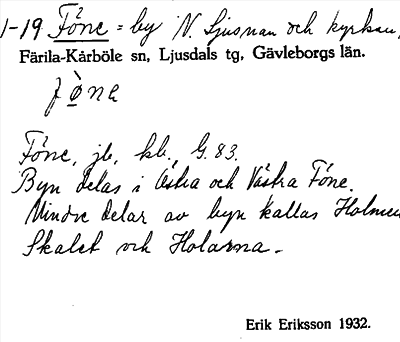 1-19 Föne = by N. Ljusnan och kyrkan,
Färila-Kårböle sn, Ljusdals tg, Gävleborgs län.
fø̀na
Föne, jb, kb., G. 83.
Byn delas i Östra och Västra Föne.
Mindre delar av byn kallas Holmen
Skalet och Holarna.
Erik Eriksson 1932.